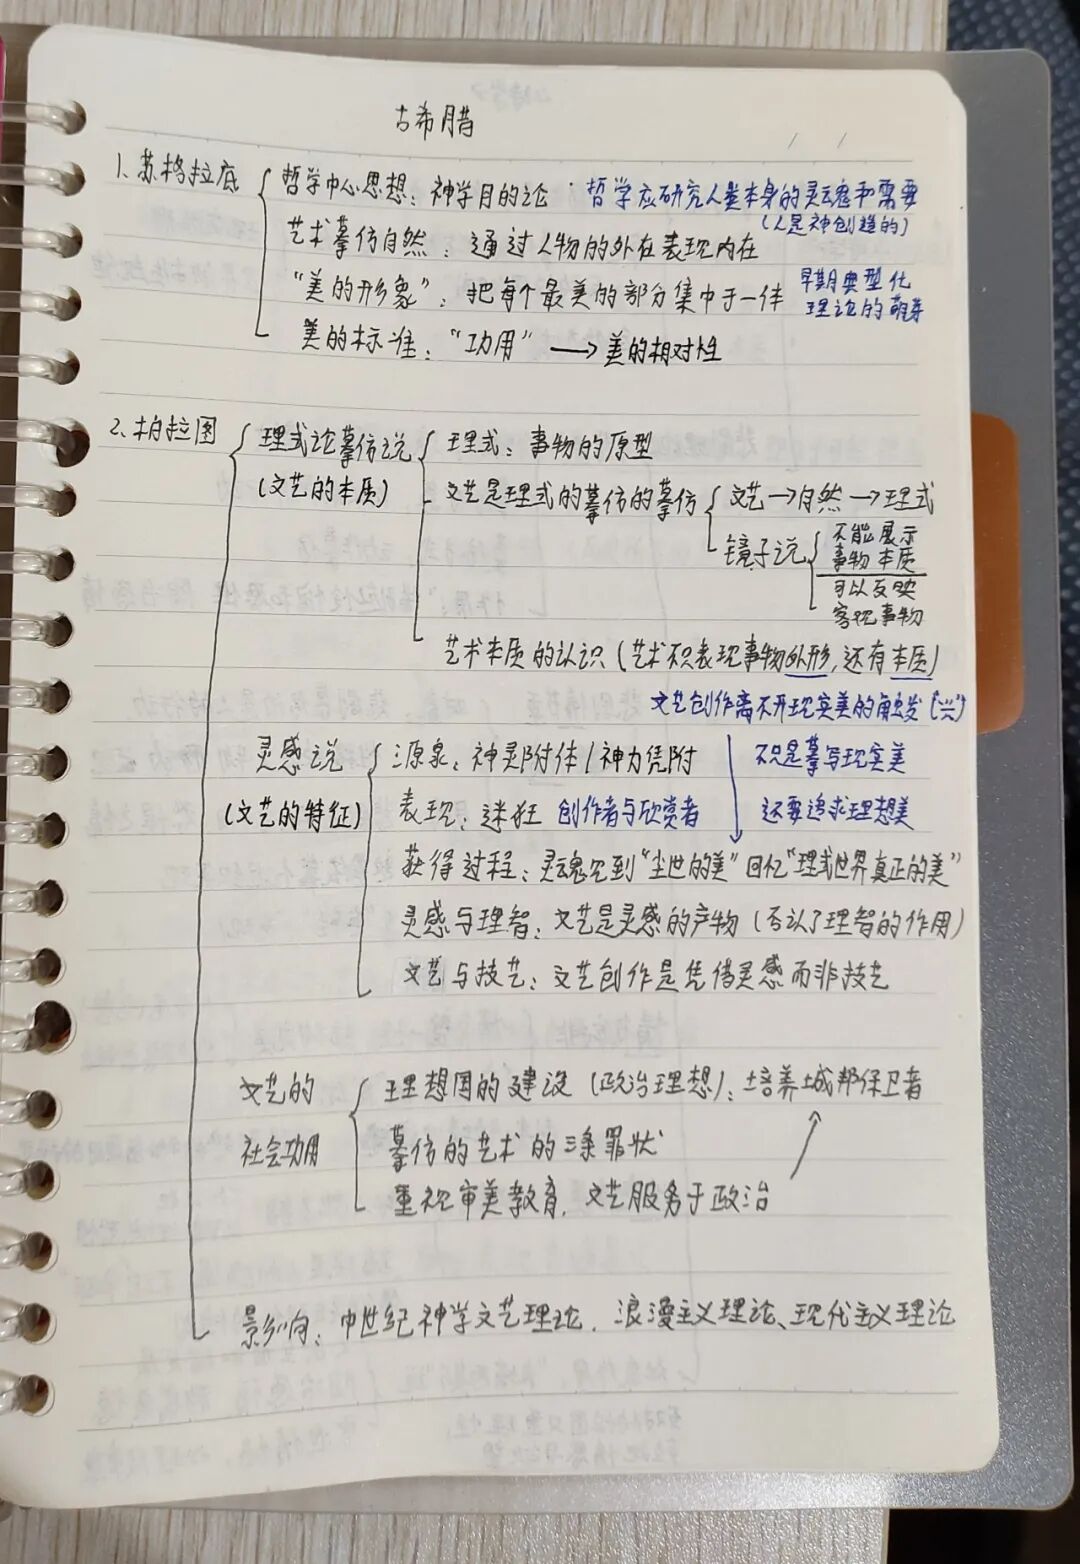 古希腊
1、苏格拉底
哲学中心思想：神学目的论：哲学应研究人类本身的灵魂和需要
(人是神创造的)
艺术摹仿自然：通过人物的外在表现内在
“美的形象”：把每个最美的部分集中于一体 早期典型化
理论的萌芽
美的标准：“功用”→美的相对性
2、柏拉图
理式论摹仿说
(文艺的本质)
理式：事物的原型
文艺是理式的摹仿的摹仿
文艺→自然→理式
镜子说
不能展示
事物本质
可以反映
客观事物
艺术本质的认识(艺术不只表现事物外形,还有本质)
文艺创作离不开现实美的触发(兴)
灵感说
(文艺的特征)
源泉：神灵附体/神力凭附
不只是摹写现实美
表现：迷狂 创作者与欣赏者
还要追求理想美
获得过程：灵魂见到“尘世的美”回忆“理式世界真正的美”
灵感与理智：文艺是灵感的产物(否认了理智的作用)
文艺与技艺：文艺创作是凭借灵感而非技艺
文艺的
社会功用
理想国的建设(政治理想)：培养城邦保卫者
摹仿的艺术的三条罪状
重视审美教育，文艺服务于政治
影响：中世纪神学文艺理论、浪漫主义理论、现代主义理论